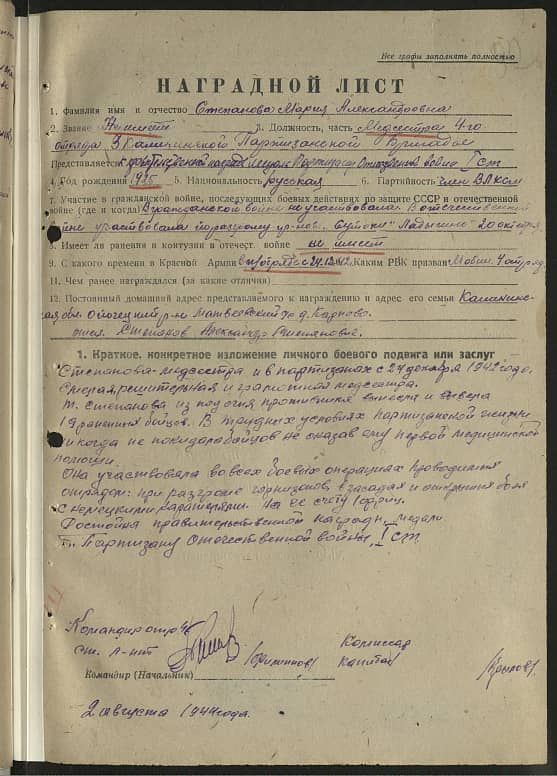 Все графы заполнять полностью
НАГРАДНОЙ ЛИСТ
1. Фамилия имя и отчество Степанова Мария Александровна
2. Звание Не имеет 3. Должность, часть Медсестра 4-го
отряда 3 Калининской Партизанской Бригады
Представляется к правительственной награде медаль Партизану Отечественной войны I ст
4. Год рождения 1925 5. Национальность русская 6. Партийность член ВЛКСМ
7. Участие в гражданской войне, последующих боевых действиях по защите СССР и отечественной
войне (где и когда) В гражданской войне не участвовала. В отечественной
войне участвовала "Ладыгино" 20 октября
8. Имеет ли ранения и контузии в отечест. войне не имеет
9. С какого времени в Красной Армии с 24.12.42 Каким РВК призван 4 отряд.
11. Чем ранее награждался (за какие отличия)
12. Постоянный домашний адрес представляемого к награждению и адрес его семьи Калининс-
кая обл. Опочецкий р-н Матвеевский д. Карпово.
Степанов Александр
1. Краткое, конкретное изложение личного боевого подвига или заслуг
Степанова-медсестра и в партизанах с 24 декабря 1942 года.
Смелая, решительная и грамотная медсестра.
Т. Степанова из под огня противника вынесла и вывезла
19 раненных бойцов. В трудных условиях партизанской жизни
никогда не покидала бойцов не оказав ему первой медицинской
помощи.
Она участвовала во всех боевых операциях проводимых
отрядом: при разгроме гарнизонов, в засадах и открытых боях
с немецкими карателями. На её счету 1 фриц.
Достойна правительственной награды, медали
"Партизану Отечественной войны" I ст.
Командир отр.
ст. л-нт
Комиссар
капитан
Командир (Начальник)
/Крылов/.
2 августа 1944 года.